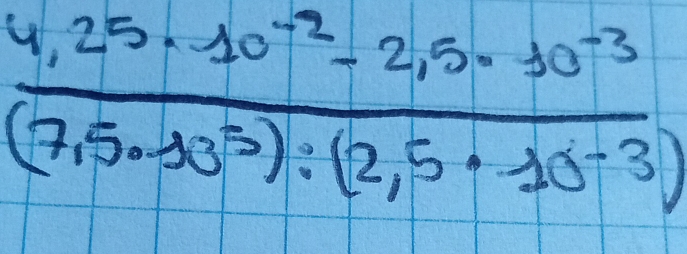 4,25·10⁻² - 2,5·10⁻³
(7,5·10⁵):(2,5·10⁻³)